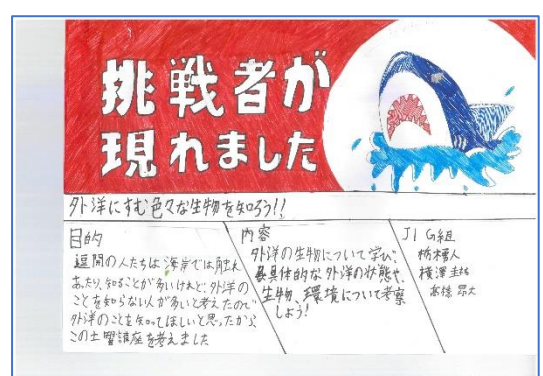 挑戦者が
現れました
外洋にすむ色々な生物を知ろう!!
目的
逗開の人たちは海岸では触れ
あたり、知ることが多いけれど、外洋の
ことを知らない人が多いと考えたので
外洋のことを知ってほしいと思ったから、
この土曜講座を考えました
内容
外洋の生物について学び、
最具体的な外洋の状態や、
生物、環境について考察
しよう!
J1 G組